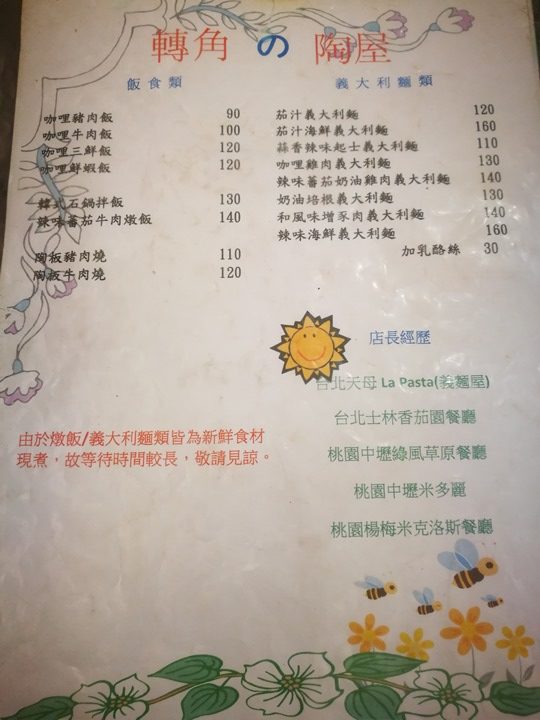 轉角 の 陶屋
飯食類
咖哩豬肉飯 90
咖哩牛肉飯 100
咖哩三鮮飯 120
咖哩鮮蝦飯 120
韓式石鍋拌飯 130
辣味蕃茄牛肉燉飯 140
陶板豬肉燒 110
陶板牛肉燒 120
義大利麵類
茄汁義大利麵 120
茄汁海鮮義大利麵 160
蒜香辣味起士義大利麵 110
咖哩雞肉義大利麵 130
辣味蕃茄奶油雞肉義大利麵 140
奶油培根義大利麵 130
和風味增豕肉義大利麵 140
辣味海鮮義大利麵 160
加乳酪絲 30
店長經歷
台北天母 La Pasta(義麵屋)
台北士林香茄園餐廳
桃園中壢綠風草原餐廳
桃園中壢米多麗
桃園楊梅米克洛斯餐廳
由於燉飯/義大利麵類皆為新鮮食材
現煮，故等待時間較長，敬請見諒。